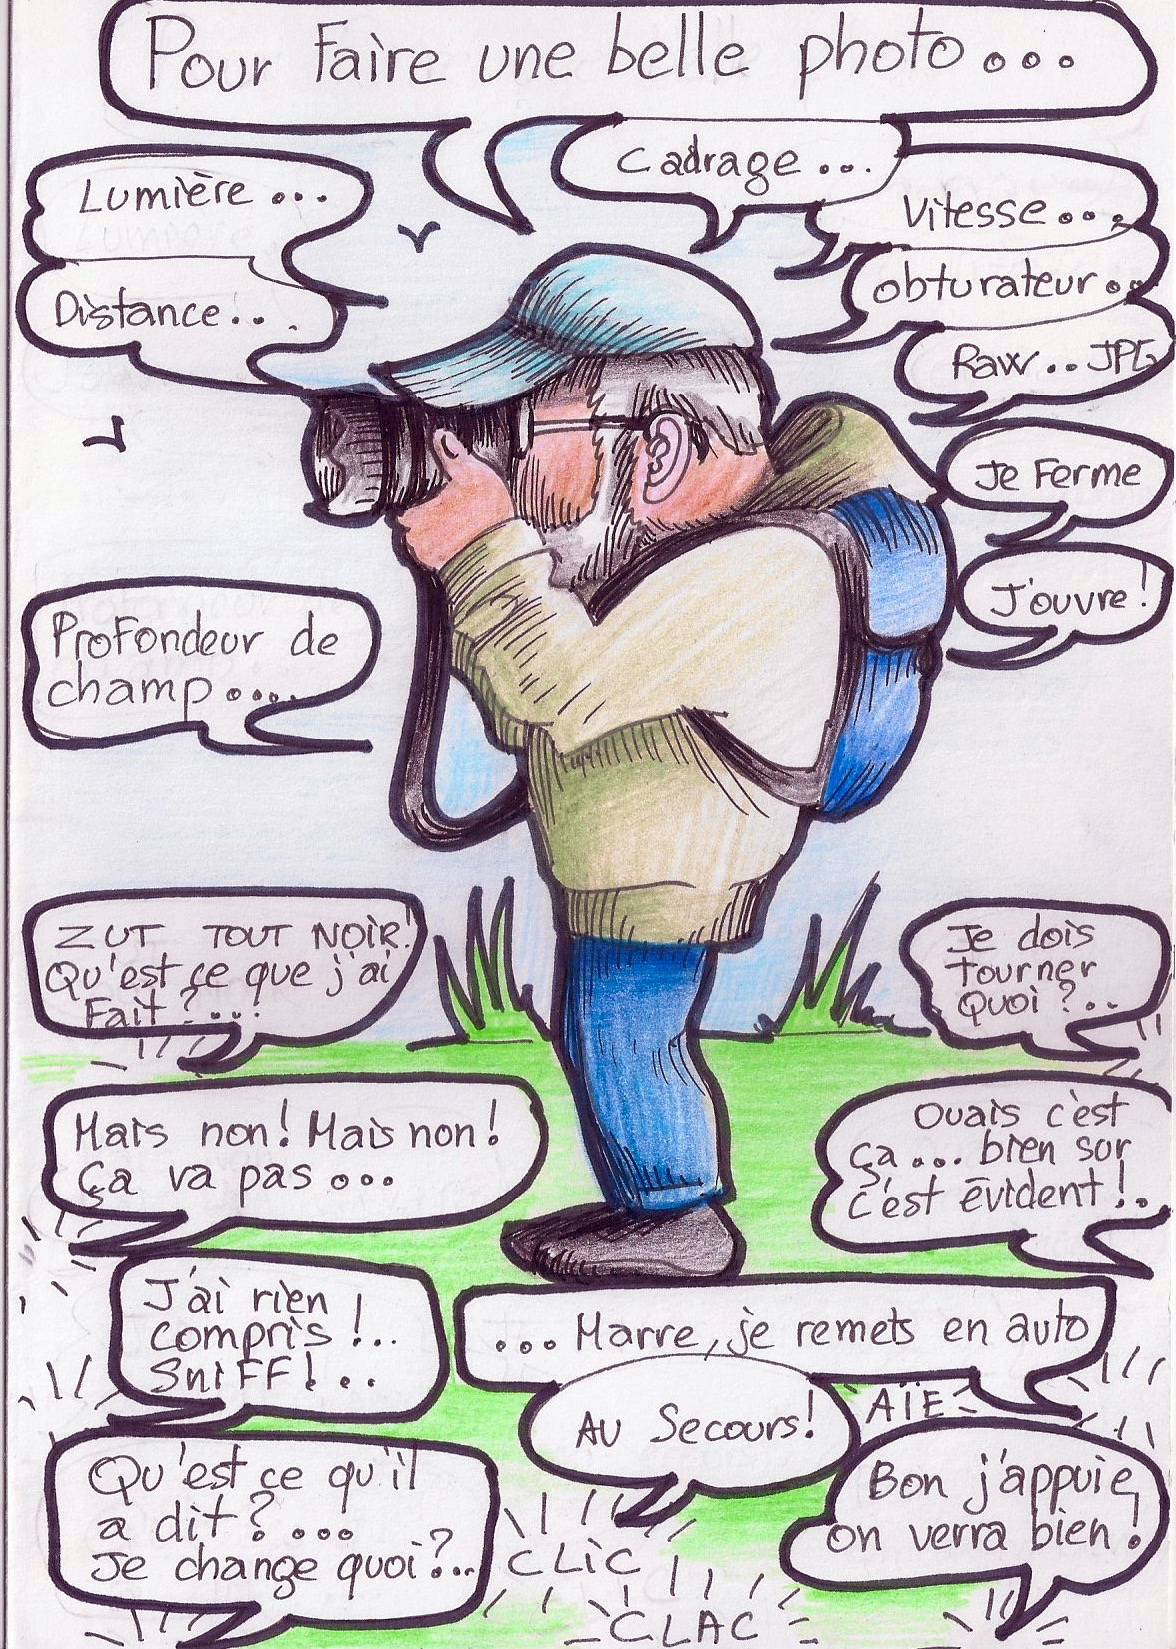 Pour faire une belle photo...
Lumière...
Cadrage...
Vitesse...
Distance...
obturateur...
Raw..JPG
Je Ferme
J'ouvre!
Profondeur de
champ....
ZUT TOUT NOIR!
Qu'est ce que j'ai
Fait?...
Je dois
tourner
Quoi?..
Mais non! Mais non!
Ça va pas...
Ouais c'est
ça... bien sor
c'est évident!.
J'ai rien
compris!..
Sniff!..
...Marre, je remets en auto
Au Secours!
AÏE
Qu'est ce qu'il
a dit?...
Je change quoi?...
Bon j'appuie,
on verra bien!
CLIC
CLAC